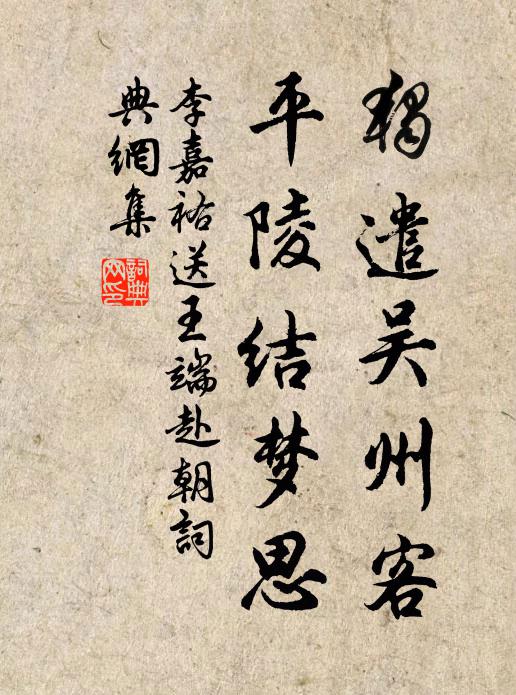 独遣吴州客
平陵结梦思
李嘉祐送王端赴朝詞
典網集
詞典网印